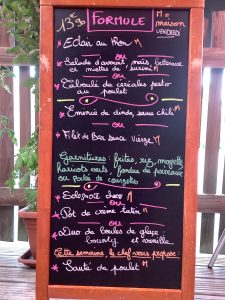 13€90 FORMULE M = maison
VENDREDI
* Eclair au thon M
ou
* Salade d'avocat, maïs, betterave
et miettes de surimi M
ou
* Taboulé de céréales pesto
au poulet
* Emincé de dinde, sauce chili M
ou
* Filet de Bar sauce vierge
Garnitures : frites, riz,
haricots verts
ou Poêlée de courgettes
ou
* Pôt de crème M
ou
* Duo de boules de glace :
bounty et vanille
Cette semaine le chef vous propose :
* Sauté de poulet M